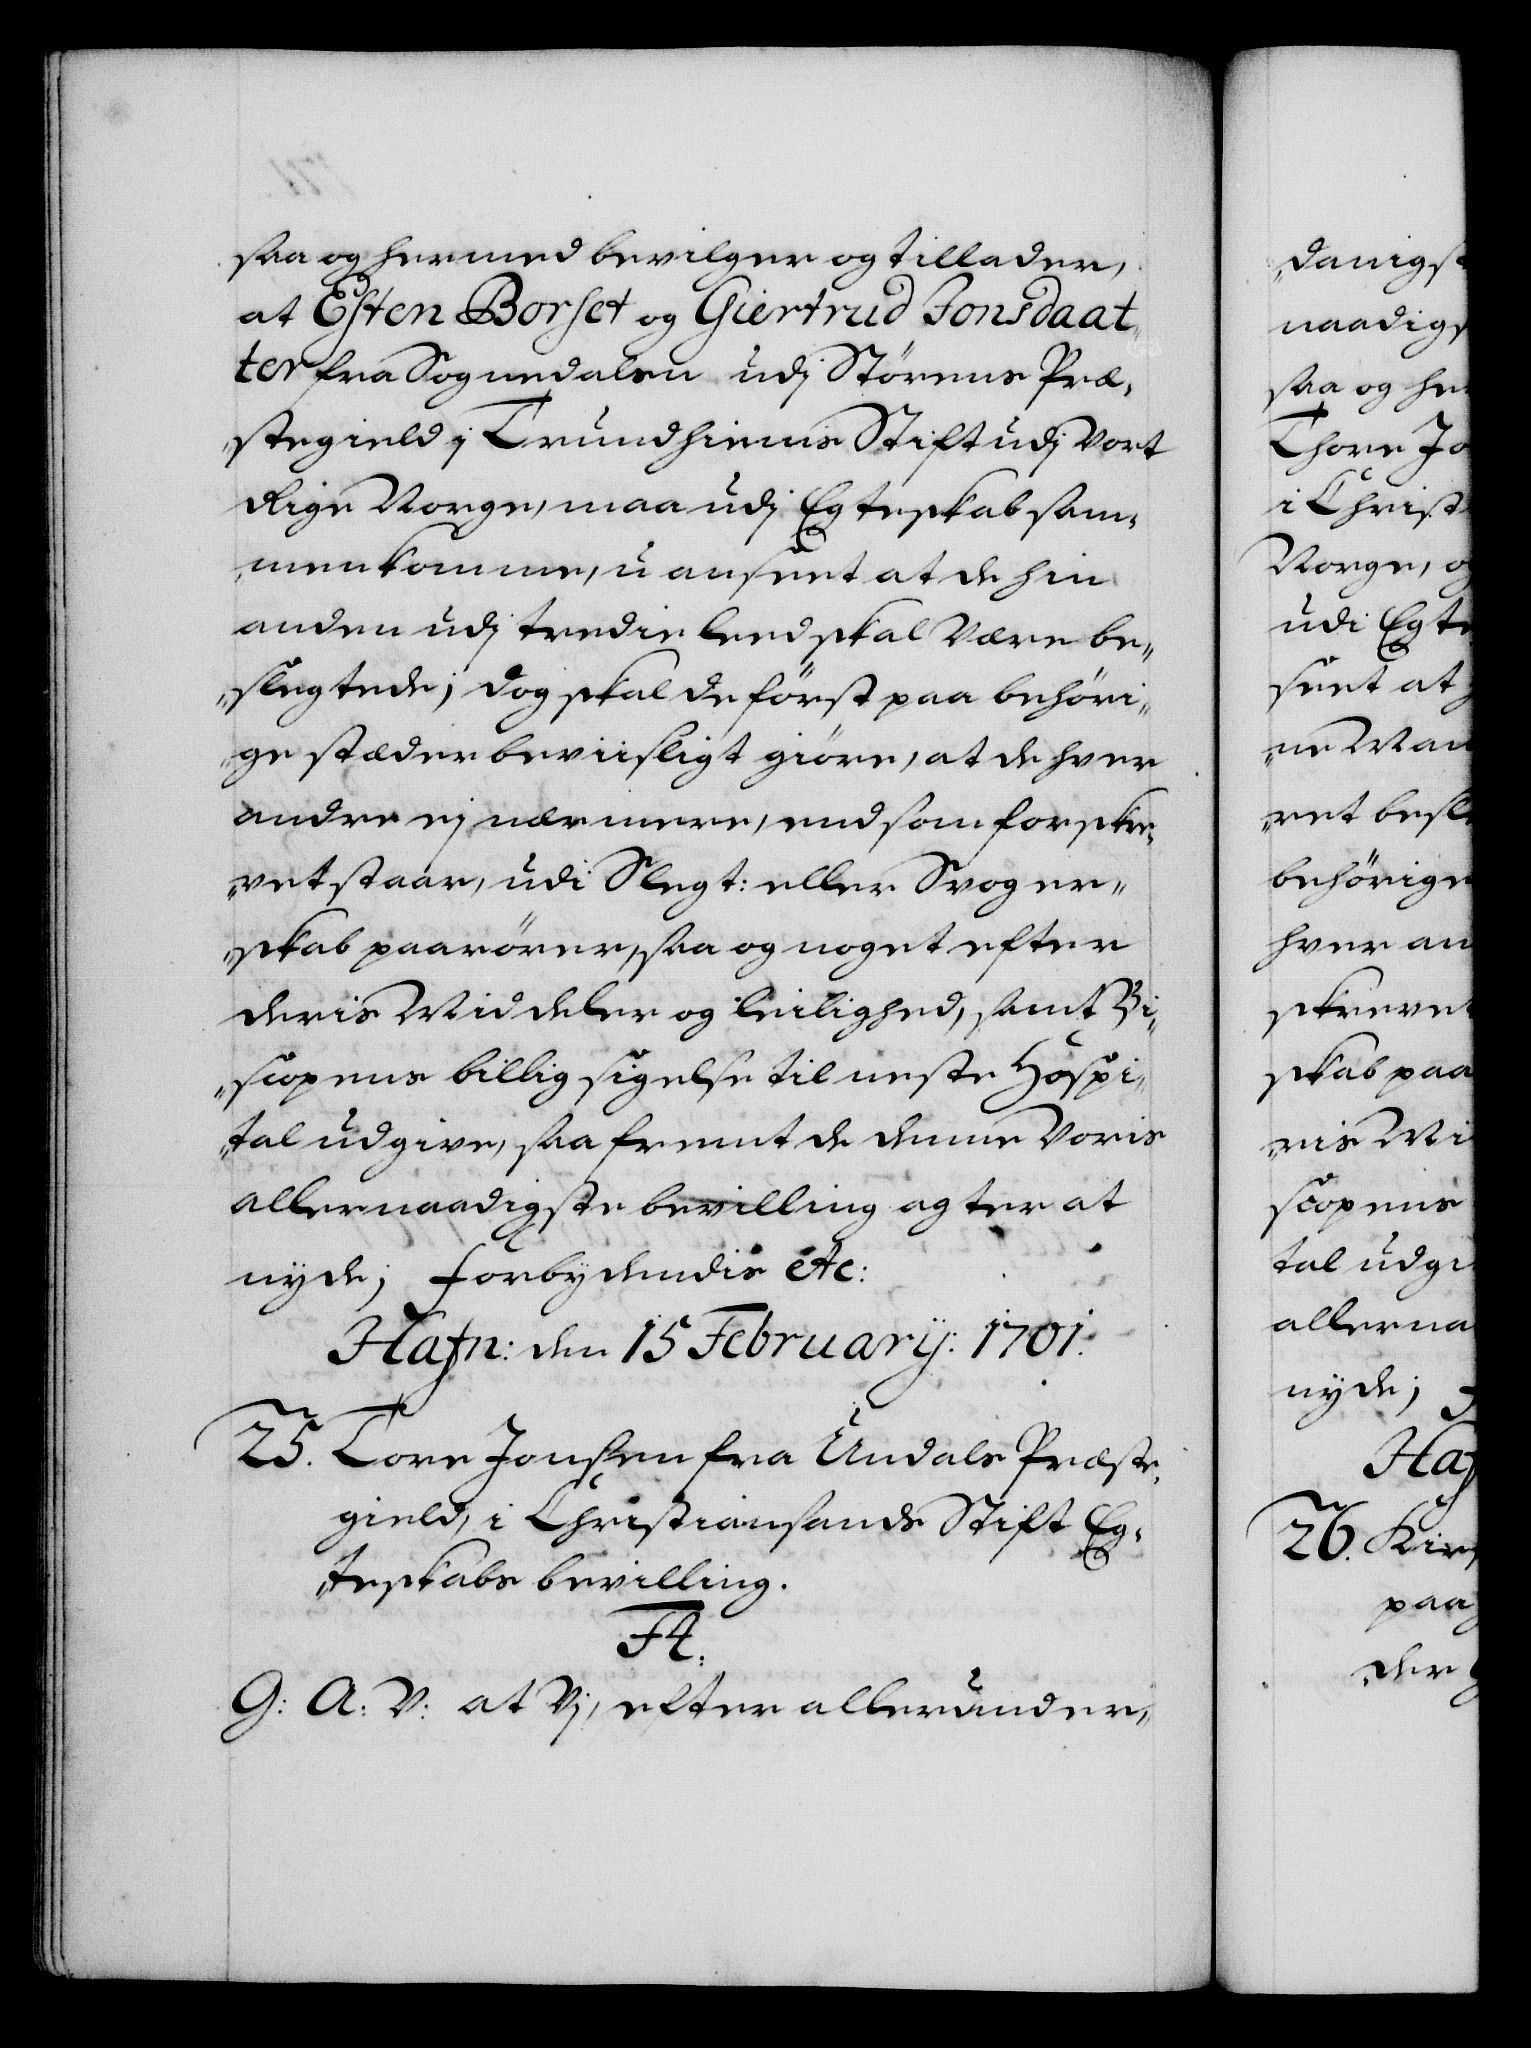 saa og hermed bevilger og tillader,
at Esten Borset og Giertrud Jonsdaat„
ter fra Sognedalen udj Störens Præ„
„stegield j Trundhiems Stift udj Vort
Rige Norge, maa udj Egteskab sam„
„menkomme, uanseet at de hin
anden udj tredie leed skal Være be„
„slegtede; dog skal de först paa behöri„
„ge stæder beviisligt giöre, at de hver
andre ej nærmere, end som forskre„
„vet staar, udi Slegt: eller Svoger„
„skab paarörer, saa og noget efter
deris Middeler og leilighed, samt Bi„
„scopens billig sigelse til neste Hospi„
„tal udgive, saafremt de denne Voris
allernaadigste bevilling agter at
nyde; forbydendis etc:
Hafn: den 15 Februarij: 1701.
25. Tore Jonsen fra Undals Præste„
gield, i Christiansands Stift Eg„
„teskabs bevilling.
F4.
G: A: V: at Vj, efter allerunder„
„danigst
naadigs
saa og he
Thore Jo
i Christ
Norge, og
udi Egte
seet at
„ne Man
„ret besle
behörige
hver an
skrevet
skab paa
„ris Mi
scopens
tal udgi
allerna
nyde; f
Haf
26. Kir
paa
der